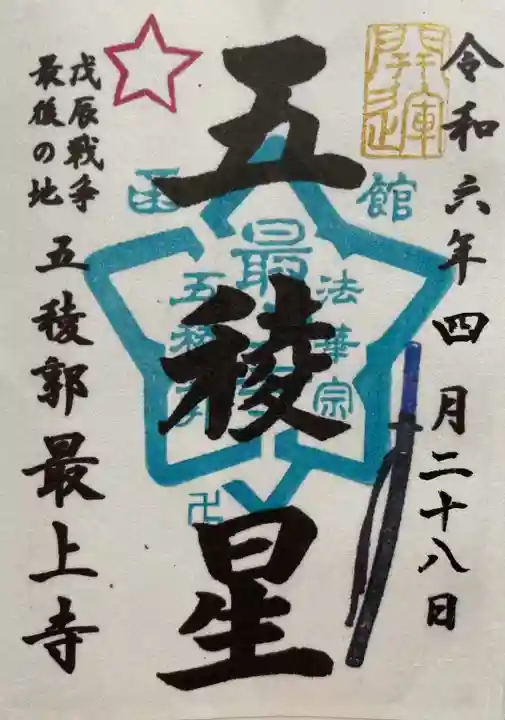 令和六年四月二十八日
開運
五稜星
函館
法華宗
最上寺
五稜郭
卍
戊辰戦争
最後の地
五稜郭最上寺